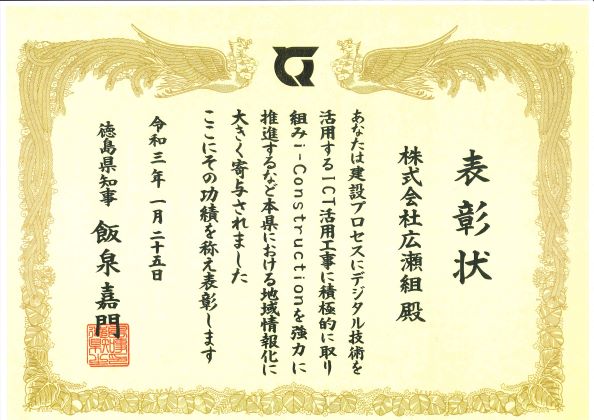 表彰状
株式会社広瀬組 殿
あなたは建設プロセスにデジタル技術を
活用するICT活用工事に積極的に取り
組みi-Constructionを強力に
推進するなど本県における地域情報化に
大きく寄与されました
ここにその功績を称え表彰します
令和三年一月二十五日
徳島県知事 飯泉嘉門